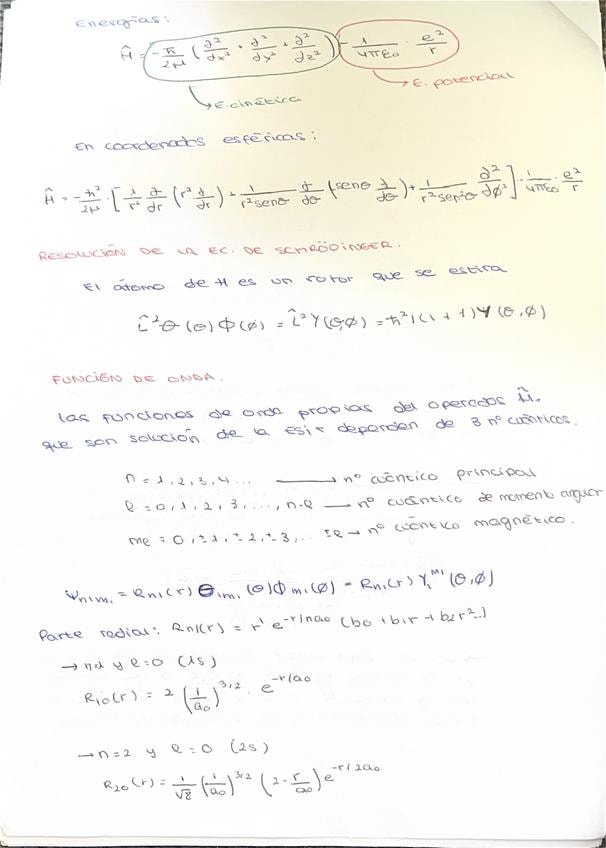 Energías:
Ĥ = -ħ/2μ (∂²/∂x² + ∂²/∂y² + ∂²/∂z²) - 1/4πε₀ · e²/r
→ E. cinética
→ E. potencial
En coordenadas esféricas:
Ĥ = -ħ²/2μ · [1/r² ∂/∂r (r² ∂/∂r) + 1/r² senθ ∂/∂θ (senθ ∂/∂θ) + 1/r² sen²θ ∂²/∂ϕ²] · 1/4πε₀ · e²/r
RESOLUCIÓN DE LA EC. DE SCHRÖDINGER.
El átomo de H es un rotor que se estira
L̂² Θ(θ) Φ(ϕ) = L̂² Y(θ,ϕ) = ħ² l(l+1) Y(θ,ϕ)
FUNCIÓN DE ONDA.
Las funciones de onda propias del operados Ĥ,
que son solución de la ESIT dependen de 3 nº cuánticos.
n = 1, 2, 3, 4... → nº cuántico principal
l = 0, 1, 2, 3, ..., n-l → nº cuántico de momento angular
ml = 0, ±1, ±2, ±3, ... ±l → nº cuántico magnético.
Ψnlml = Rnl(r) Θlml(θ) Φml(ϕ) = Rnl(r) Yl^ml(θ,ϕ)
Parte radial: Rnl(r) = r^l e^-r/na₀ (b₀ + b₁r + b₂r²...)
→ n=1 y l=0 (1s)
R₁₀(r) = 2 (1/a₀)^3/2 · e^-r/a₀
→ n=2 y l=0 (2s)
R₂₀(r) = 1/√8 (1/a₀)^3/2 (2 - r/a₀) e^-r/2a₀